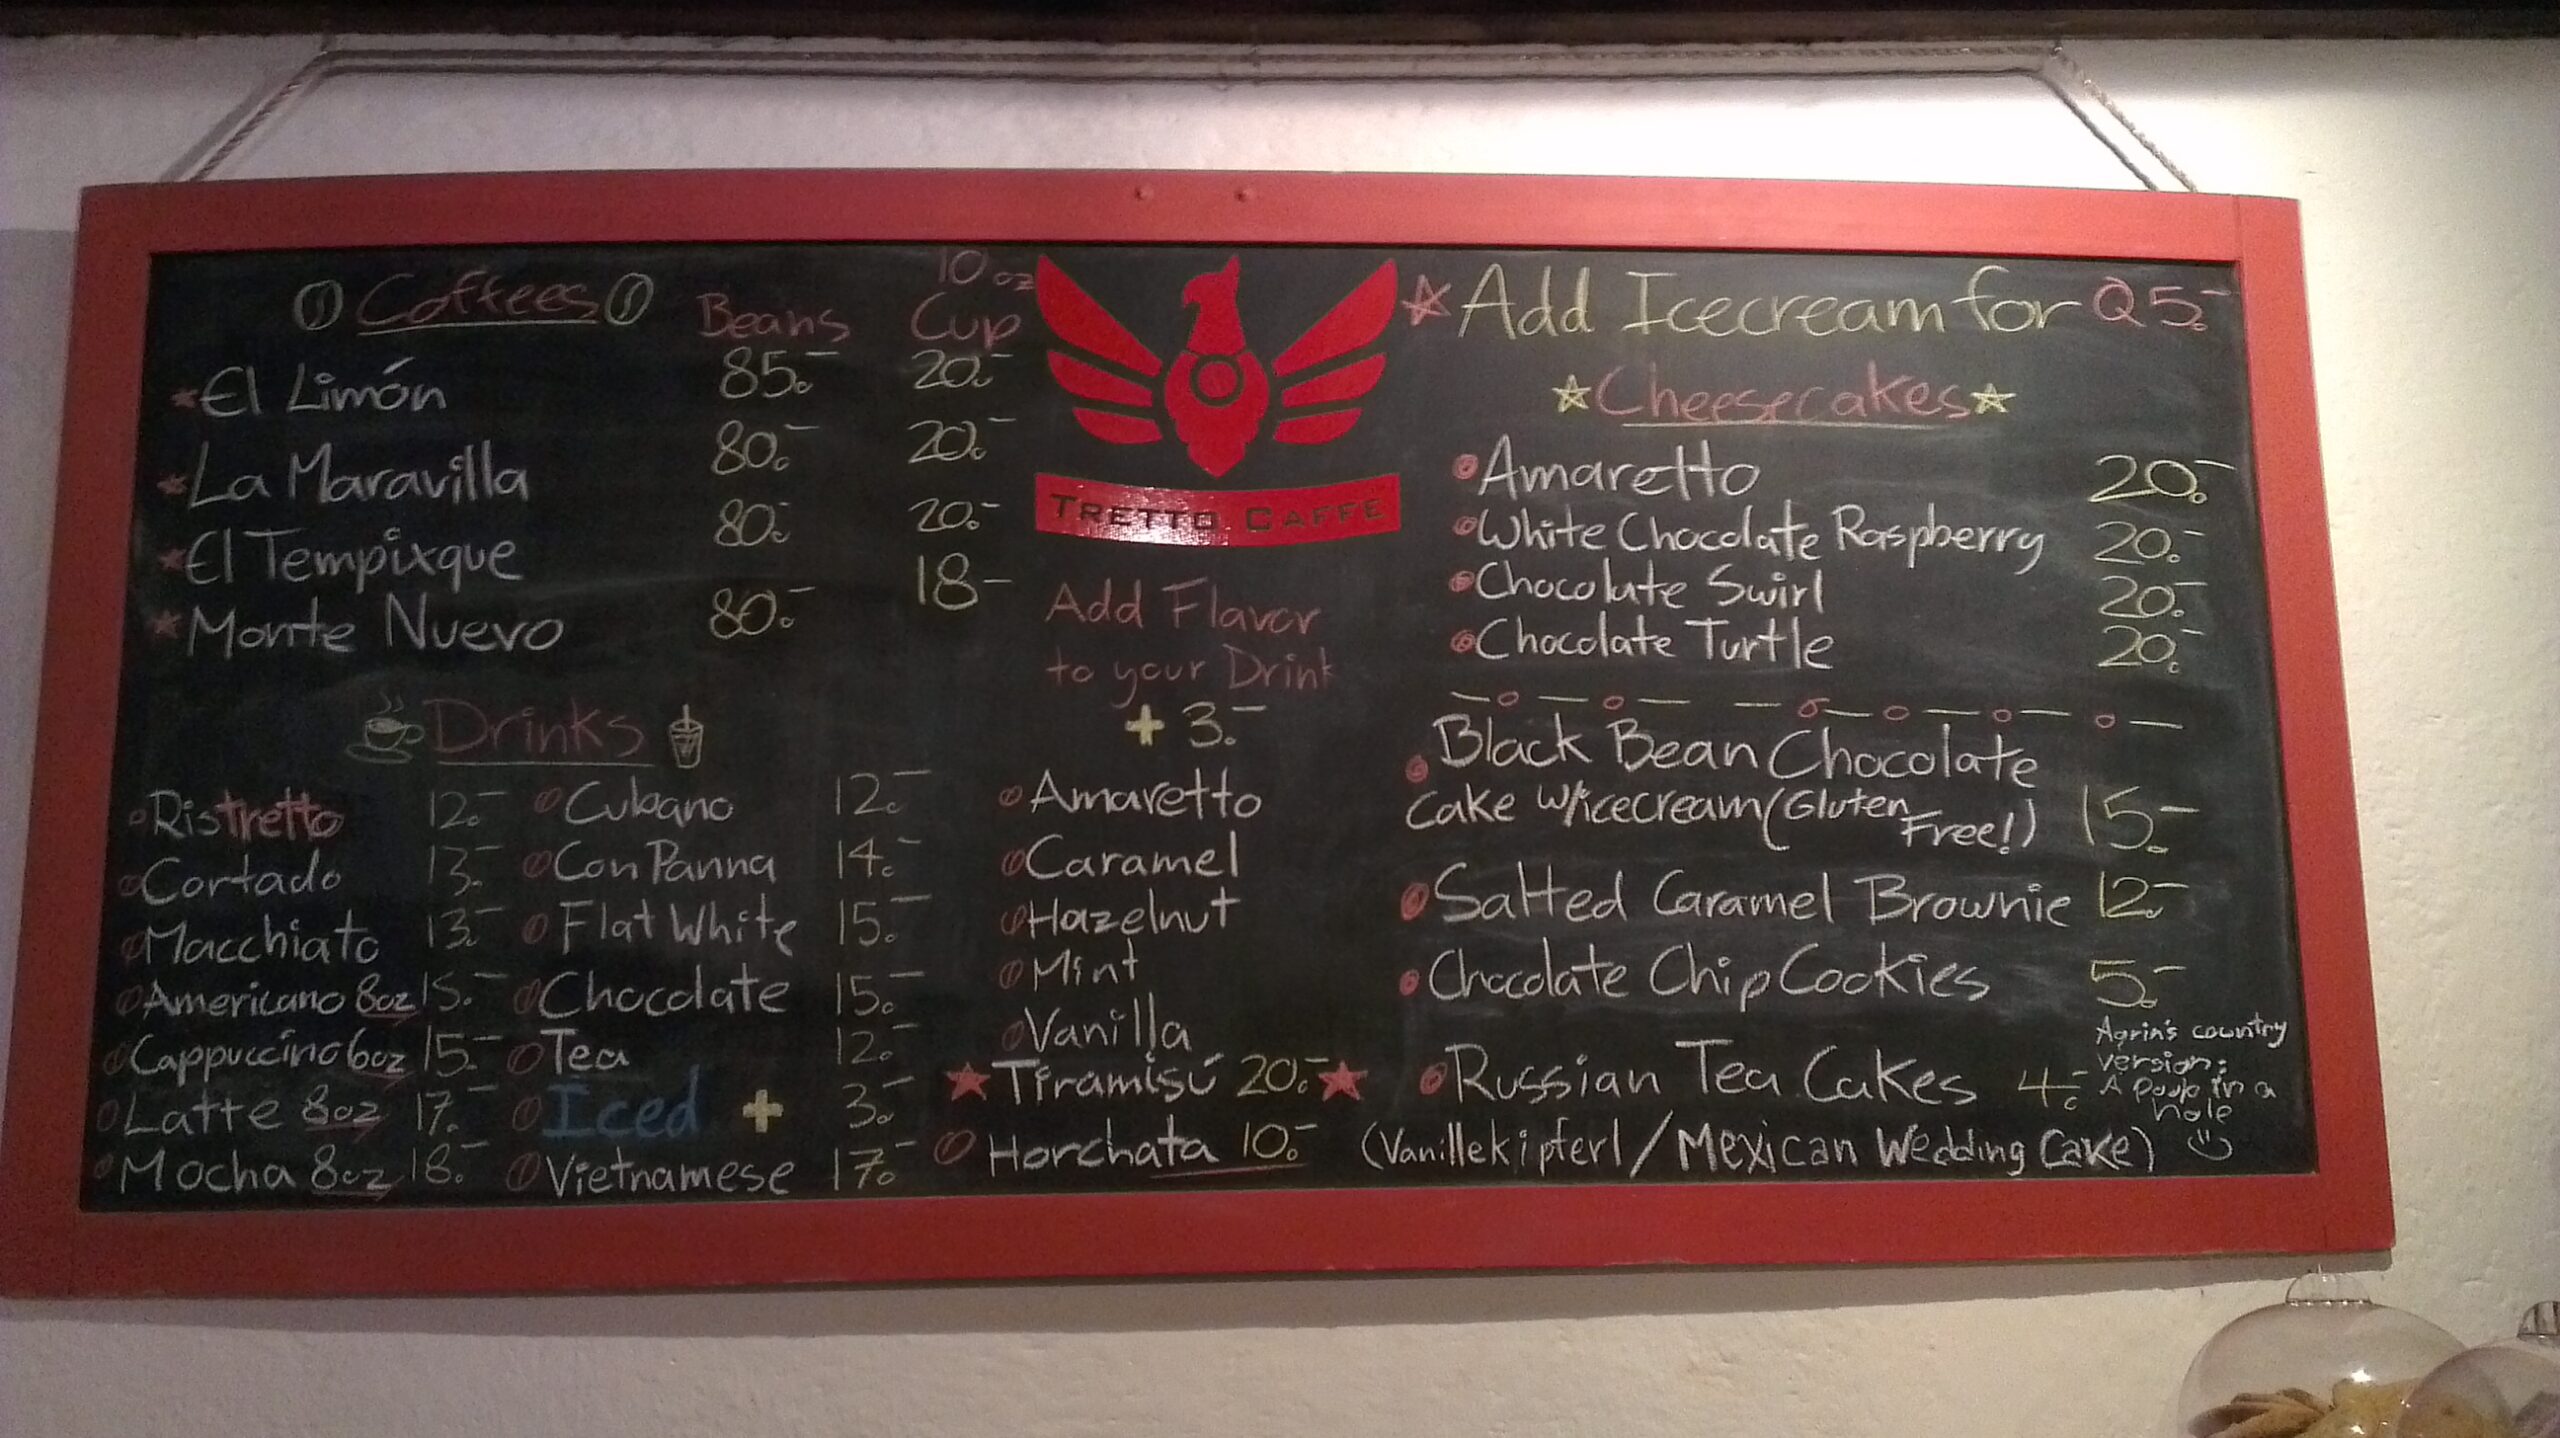 Coffees Beans 10 oz Cup
El Limón 85.- 20.-
La Maravilla 80.- 20.-
El Tempixque 80.- 20.-
Monte Nuevo 80.- 18-
Drinks
Ristretto 12.-
Cortado 13.-
Macchiato 13.-
Americano 8oz 15.-
Cappuccino 6oz 15.-
Latte 8oz 17.-
Mocha 8oz 18.-
Cubano 12.-
Con Panna 14.-
Flat White 15.-
Chocolate 15.-
Tea 12.-
Iced + 3.-
Vietnamese 17.-
TRETTO CAFFE
Add Flavor
to your Drink
+ 3.-
Amaretto
Caramel
Hazelnut
Mint
Vanilla
Tiramisú 20.-
Horchata 10.-
Add Icecream for Q5.-
Cheesecakes
Amaretto 20.-
White Chocolate Raspberry 20.-
Chocolate Swirl 20.-
Chocolate Turtle 20.-
Black Bean Chocolate
Cake w/icecream (Gluten Free!) 15.-
Salted Caramel Brownie 12.-
Chocolate Chip Cookies 5.-
Russian Tea Cakes 4.-
(Vanillekipferl/Mexican Wedding Cake)
country
version:
A in a
hole